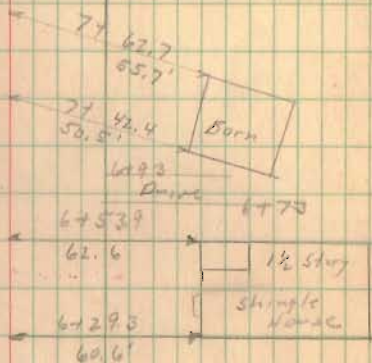 7+ 62.7
55.7'
7+ 42.4
50.5'
Barn
6+93
Drive
6+73
6+53.9
62.6
1½ Story
Shingle
House
6+29.3
60.6'